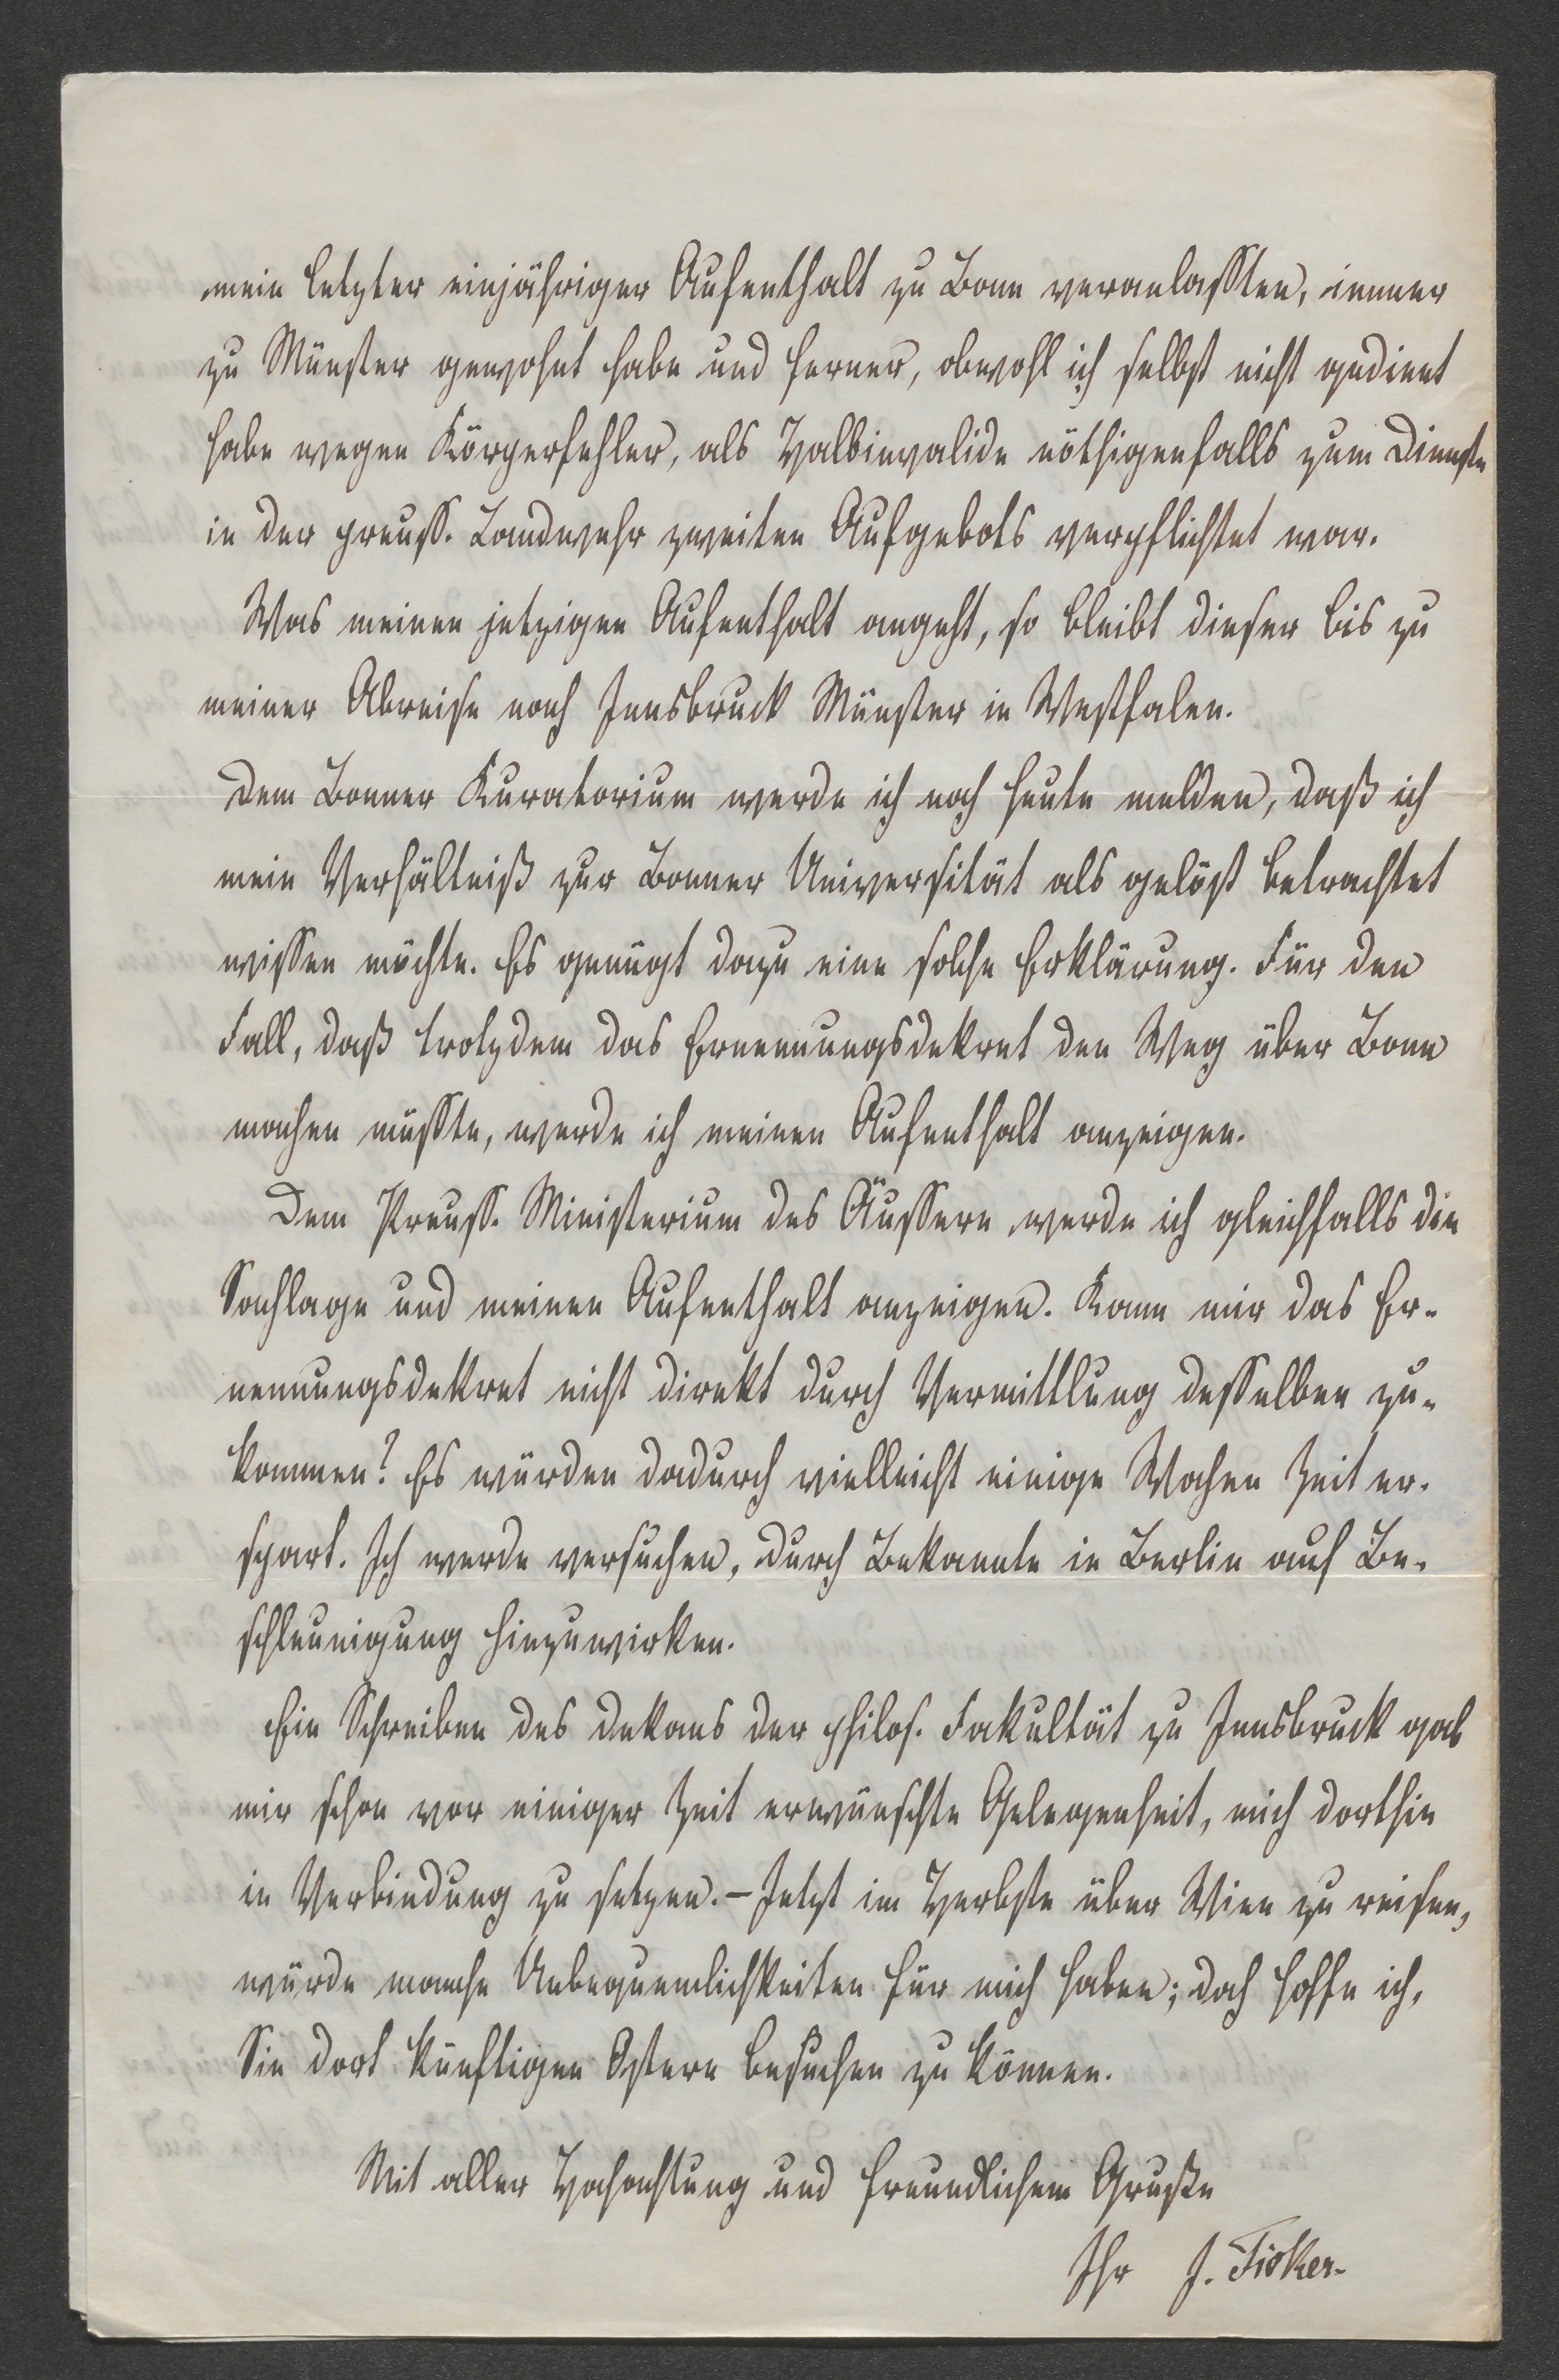 mein letzter einjähriger Aufenthalt zu Bonn veranlaßten, immer
zu Münster gewohnt habe und ferner, obwohl ich selbst nicht gedient
habe wegen Körperfehler, als Halbinvalide nöthigenfalls zum Dienste
in der preuß. Landwehr zweiten Aufgebots verpflichtet war.
Was meinen jetzigen Aufenthalt angeht, so bleibt dieser bis zu
meiner Abreise nach Innsbruck Münster in Westfalen.
Dem Bonner Kuratorium werde ich noch heute melden, daß ich
mein Verhältniß zur Bonner Universität als gelöst betrachtet
wissen möchte. Es genügt dazu eine solche Erklärung. Für den
Fall, daß trotzdem das Ernennungsdekret den Weg über Bonn
machen müsste, werde ich meinen Aufenthalt anzeigen.
Dem Preuß. Ministerium des Äussern werde ich gleichfalls die
Sachlage und meinen Aufenthalt anzeigen. Kann mir das Er-
nennungsdekret nicht direkt durch Vermittlung desselben zu-
kommen? Es würden dadurch vielleicht einige Wochen Zeit er-
spart. Ich werde versuchen, durch Bekannte in Berlin auf Be-
schleunigung hinzuwirken.
Ein Schreiben des Dekans der philos. Fakultät zu Innsbruck gab
mir schon vor einiger Zeit erwünschte Gelegenheit, mich dorthin
in Verbindung zu setzen. – Jetzt im Herbste über Wien zu reisen,
würde manche Unbequemlichkeiten für mich haben; doch hoffe ich,
Sie dort künftigen Ostern besuchen zu können.
Mit aller Hochachtung und freundlichem Gruße
Ihr J. Ficker.